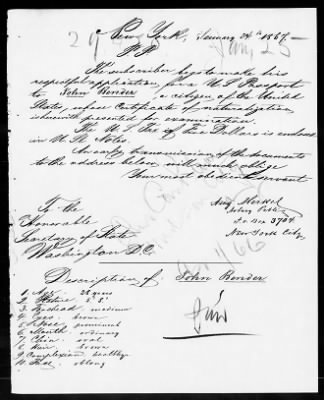 New York, January 24th 1867.
The subscriber begs to make his
respectful application for a U.S. Passport
to John Bender a citizen of the United
States, whose Certificate of naturalization
is herewith presented for examination.
The U.S. Fee of Five Dollars is enclosed
in U.S. Notes.
An early transmission of the documents
to the address below will much oblige
Your most obedient servant
Aug. Merkel
Notary Public
P.O. Box 3704
New York City
To the
Honorable
Secretary of State
Washington D.C.
Description of John Bender
1. Age 28 years
2. Stature 5' 8"
3. Forehead medium
4. Eyes brown
5. Nose prominent
6. Mouth ordinary
7. Chin oval
8. Hair brown
9. Complexion healthy
10. Face oblong